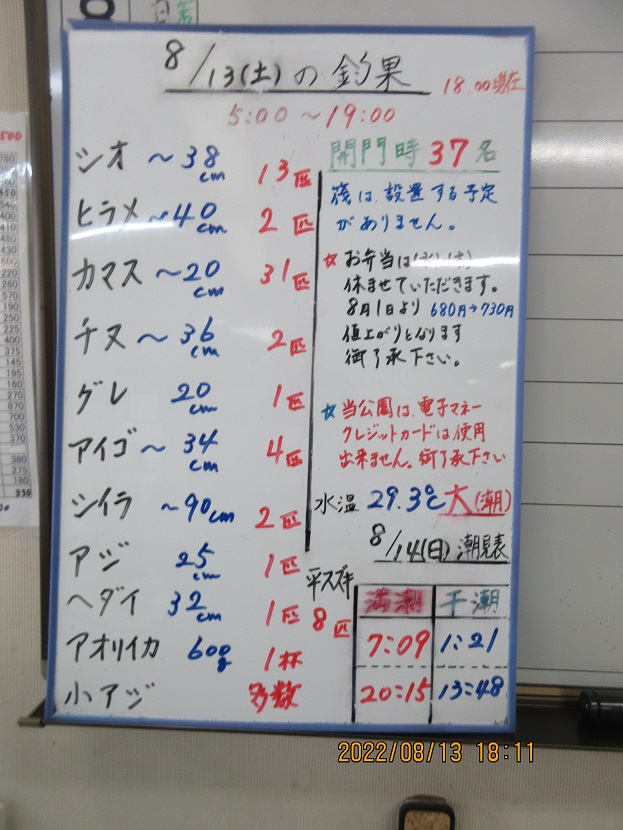 8/13(土)の釣果
18.00現在
5:00～19:00
シオ ～38cm 13匹
ヒラメ ～40cm 2匹
カマス ～20cm 31匹
チヌ ～36cm 2匹
グレ 20cm 1匹
アイゴ ～34cm 4匹
シイラ ～90cm 2匹
アジ 25cm 1匹
ヘダイ 32cm 1匹
アオリイカ 600g 1杯
小アジ 多数
平スズキ 8匹
開門時37名
筏は、設置する予定
がありません。
☆お弁当は
休ませていただきます。
8月1日より 680円→730円
値上がりとなります
御了承下さい。
☆当公園は、電子マネー
クレジットカードは使用
出来ません。御了承下さい
水温 29.3℃ 大(潮)
8/14(日)潮見表
満潮 干潮
7:09 1:21
20:15 13:48
2022/08/13 18:11